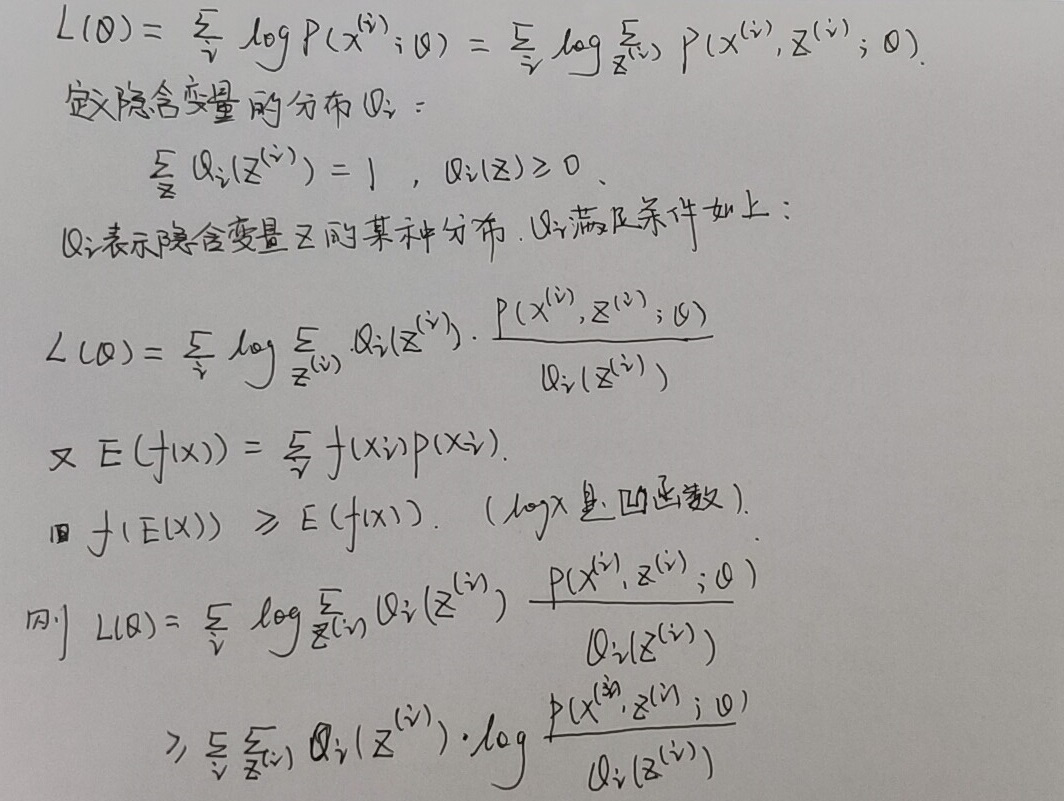 L(θ) = Σ_i log P(x^(i); θ) = Σ_i log Σ_{z^(i)} P(x^(i), z^(i); θ).
定义隐含变量的分布 Q_i:
Σ_z Q_i(z^(i)) = 1 , Q_i(z) ≥ 0、
Q_i表示隐含变量 z 的某种分布. Q_i满足条件如上:
L(θ) = Σ_i log Σ_{z^(i)} Q_i(z^(i)) · P(x^(i), z^(i); θ) / Q_i(z^(i))
又 E(f(x)) = Σ_i f(x_i)p(x_i).
且 f(E(x)) ≥ E(f(x)). (logx 是凹函数).
则 L(θ) = Σ_i log Σ_{z^(i)} Q_i(z^(i)) P(x^(i), z^(i); θ) / Q_i(z^(i))
≥ Σ_i Σ_{z^(i)} Q_i(z^(i)) · log P(x^(i), z^(i); θ) / Q_i(z^(i))